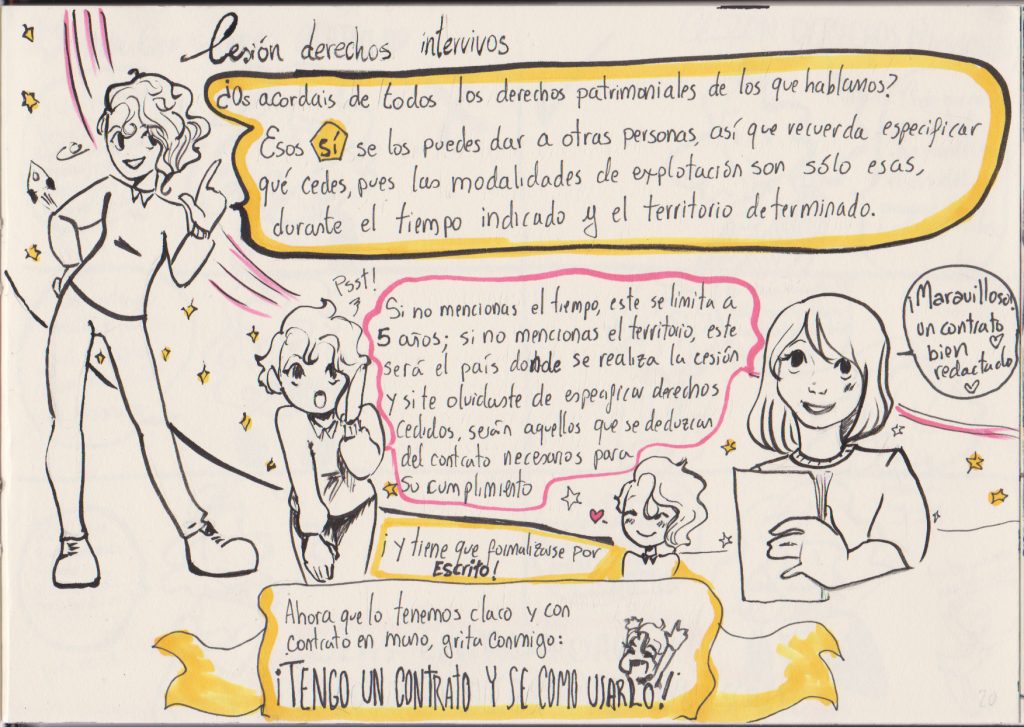 Cesión derechos intervivos
¿Os acordais de todos los derechos patrimoniales de los que hablamos?
Esos sí se los puedes dar a otras personas, así que recuerda especificar
qué cedes, pues las modalidades de explotación son sólo esas,
durante el tiempo indicado y el territorio determinado.
Psst!
Si no mencionas el tiempo, este se limita a
5 años; si no mencionas el territorio, este
será el país donde se realiza la cesión
y si te olvidaste de especificar derechos
cedidos, serán aquellos que se deduzcan
del contrato necesarios para
su cumplimiento
¡Maravilloso!
un contrato
bien
redactado
¡Y tiene que formalizarse por
Escrito!
Ahora que lo tenemos claro y con
contrato en mano, grita conmigo:
¡TENGO UN CONTRATO Y SE COMO USARLO!
20